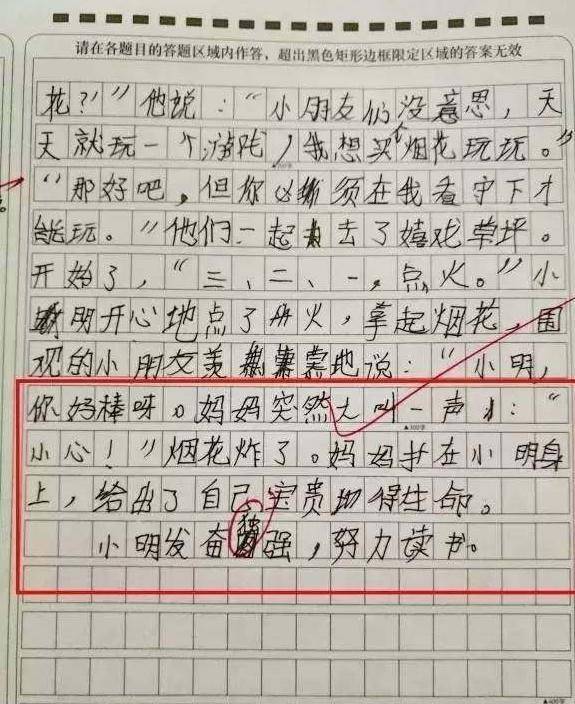 请在各题目的答题区域内作答，超出黑色矩形边框限定区域的答案无效
花？！”他说：“小朋友们没意思，天
天就玩一个游戏，我想买个烟花玩玩。”
“那好吧，但你必须在我看守下才
能玩。”他们一起去了嬉戏草坪。
开始了，“三、二、一，点火。”小
明开心地点了火，拿起烟花，围
观的小朋友羡慕地说：“小明，
你好棒呀。妈妈突然大叫一声：“
▲300字
小心！”烟花炸了。妈妈扑在小明身
上，给出了自己宝贵地得生命。
小明发奋强，努力读书。
▲400字